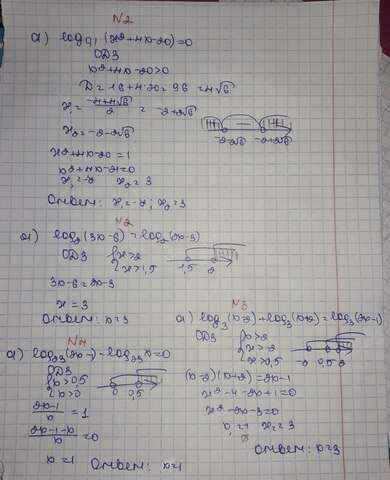 N2
a) log₀,₁ (x²+4x-20)=0
ОДЗ
x²+4x-20>0
D=16+4·20=96=4√6
x₁= (-4+4√6)/2 = -2+2√6
x₂=-2-2√6
-2-2√6 -2+2√6
x²+4x-20=1
x²+4x-21=0
x₁=-7 x₂=3
Ответ: x₁=-7; x₂=3
N2
а) log₂(3x-6)=log₂(2x-3)
ОДЗ {x>2
{x>1,5
1,5 2
3x-6=2x-3
x=3
Ответ: x=3
N3
а) log₃(x-2)+log₃(x+2)=log₃(2x-1)
ОДЗ {x>2
{x>-2
{x>0,5
-2 0,5 2
(x-2)(x+2)=2x-1
x²-4-2x+1=0
x²-2x-3=0
x₁=-1 x₂=3
Ответ: x=3
N4
а) log₂₃(2x-1)-log₂₃x=0
ОДЗ
{x>0,5
{x>0
0 0,5
(2x-1)/x=1
(2x-1-x)/x=0
x=1 Ответ: x=1